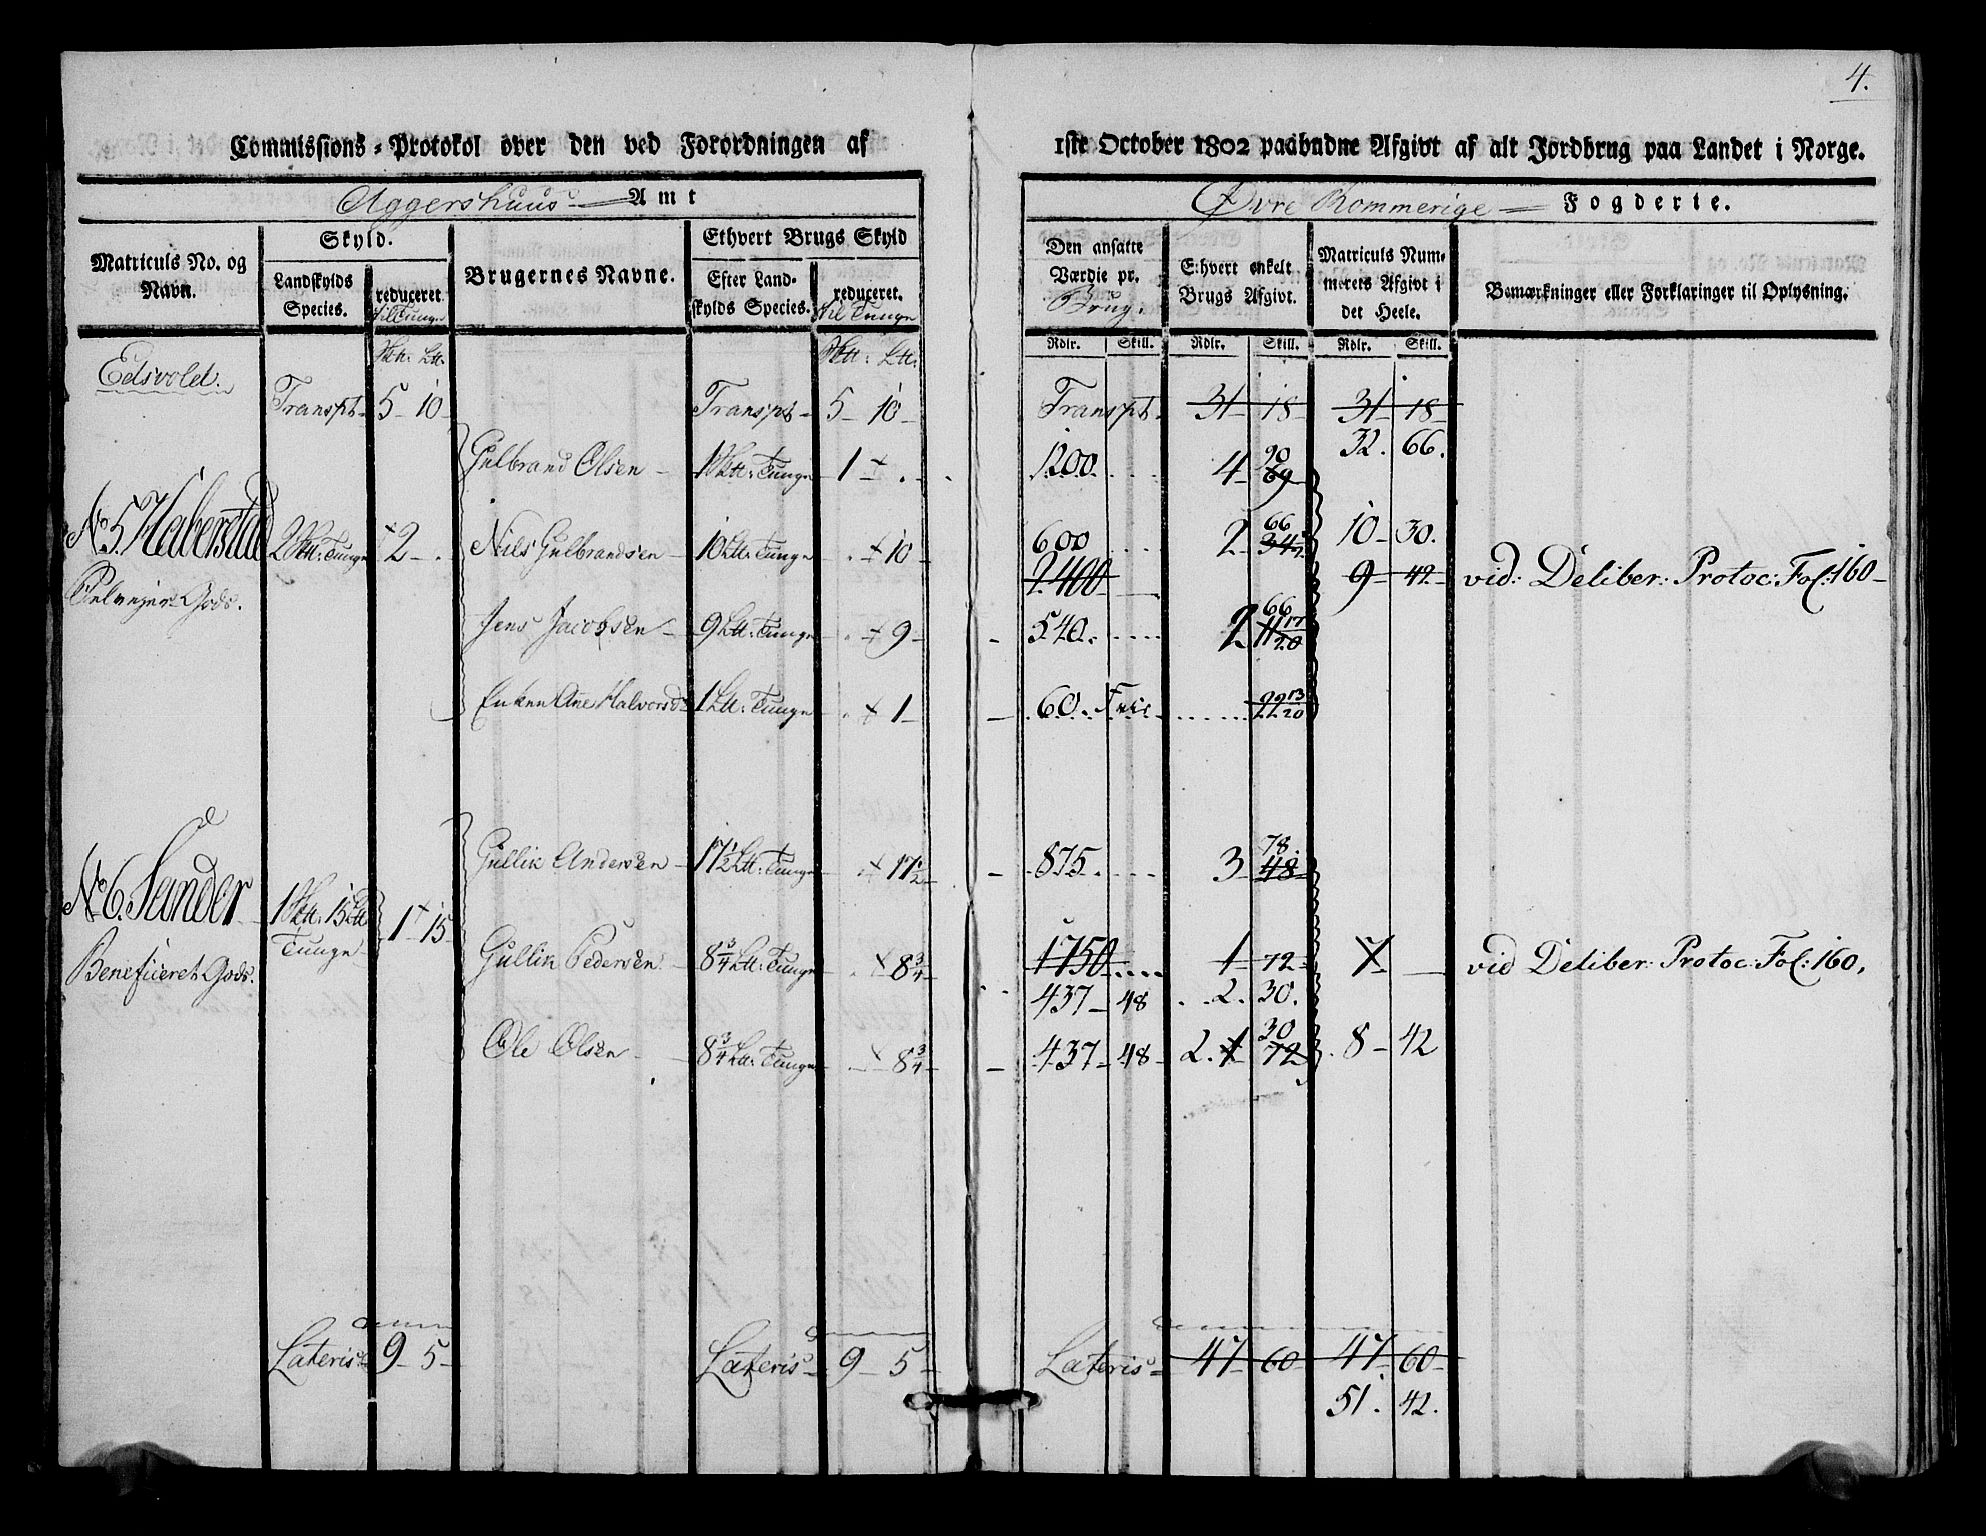 4.
Commissions-Protokol over den ved Forordningen af 1ste October 1802 paabudne Afgivt af alt Jordbrug paa Landet i Norge.
Aggershuus Amt
Øvre Rommerige Fogderie.
Matriculs No. og Navn.
Skyld.
Landskylds Species.
reduceret til Tunge
Brugernes Navne.
Ethvert Brugs Skyld
Efter Landskylds Species.
reduceret. til Tunge
Den ansatte Værdie pr. Brug.
Ethvert enkelt Brugs Afgivt.
Matriculs Nummerets Afgivt i det Heele.
Bemærkninger eller Forklaringer til Oplysning.
Rdlr. Skill. Rdlr. Skill. Rdlr. Skill.
Edsvold.
Transpt 5 10 Transpt 5 10 Transpt 31 18 31 18
32. 66.
Gulbrand Olsen 1 Tunge 1 . 1200 4 90 69
No 5. Haberstad 2 Tunge 2 . Nils Gulbrandsen 10 Tunge . 10 600 2 66 34 10 30.
2400 9 42 vid: Deliber: Protoc: Fol: 160
Gods.
Jens Jacobsen 9 Tunge . 9 540 2 66 11 17/20
Enken Ane Halvorsd 1 Tunge . 1 60 Frie 22 13/20
Gullik Andersen 17½ Tunge 17½ 875 3 78. 48
No 6. Sander 1 15 Tunge 1 15
Beneficeret Gods.
Gullik Pedersen 8¾ Tunge 8¾ 1750 1 72 7 vid Deliber: Protoc: Fol: 160.
437 48 2. 30.
Ole Olsen 8¾ Tunge 8¾ 437 48 2. 1 30 72 8 42
Lateris 9 5 Lateris 9 5 Lateris 47 60 47 60
51. 42.